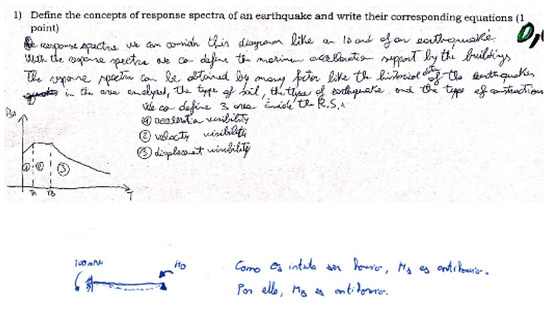 1) Define the concepts of response spectra of an earthquake and write their corresponding equations (1
point)
0,
response spectra we can consider this diagram like an id card of an earthquake.
With the response spectra we can define the maximum acceleration support by the buildings
The response spectra can be obtained by many factor like the historical of the earthquakes
in the area analysed, the type of soil, the type of earthquake and the type of construction
We can define 3 area inside the R.S.
① acceleration sensibility
② velocity sensibility
③ displacement sensibility
① ② ③
T
100 mN MD
Como es horario, es antihorario.
Por ello, es antihorario.